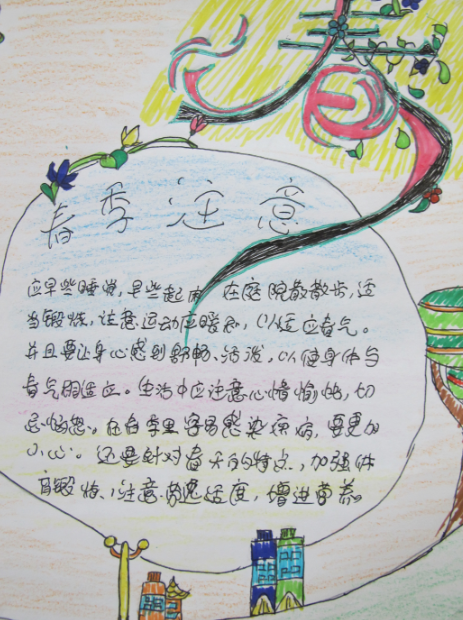 春
春季注意
应早些睡觉,早些起床 在庭院散散步,适
当锻炼,注意运动应暖和,以适应春气。
并且要让身心感到舒畅、活泼,以使身体与
春气相适应。生活中应注意心情愉快,切
忌恼怒。在春季里容易感染疾病,要更加
小心。还要针对春天的特点,加强体
育锻炼、注意劳逸适度,增进营养。